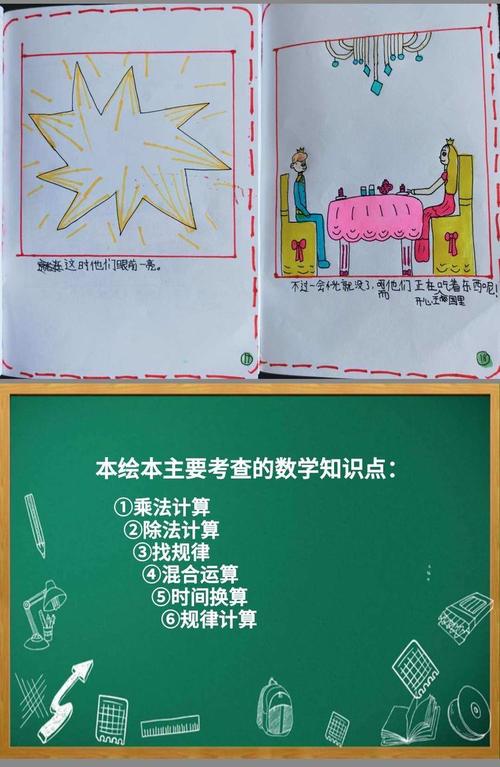 这时他们眼前一亮。
17
不过一会光就没了,而他们正在吃着东西呢!
开心王国里
18
本绘本主要考查的数学知识点:
①乘法计算
②除法计算
③找规律
④混合运算
⑤时间换算
⑥规律计算